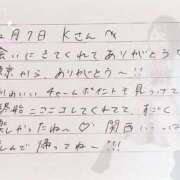 月7日 Kさんへ
会いにきてくれてありがとう
から、ありがとう〜!!
わいい チャームポイントも見つけて
終始ニコニコしてくれてて、すごく
楽しかったね〜♡ 関西
しんで帰ってね〜!!!